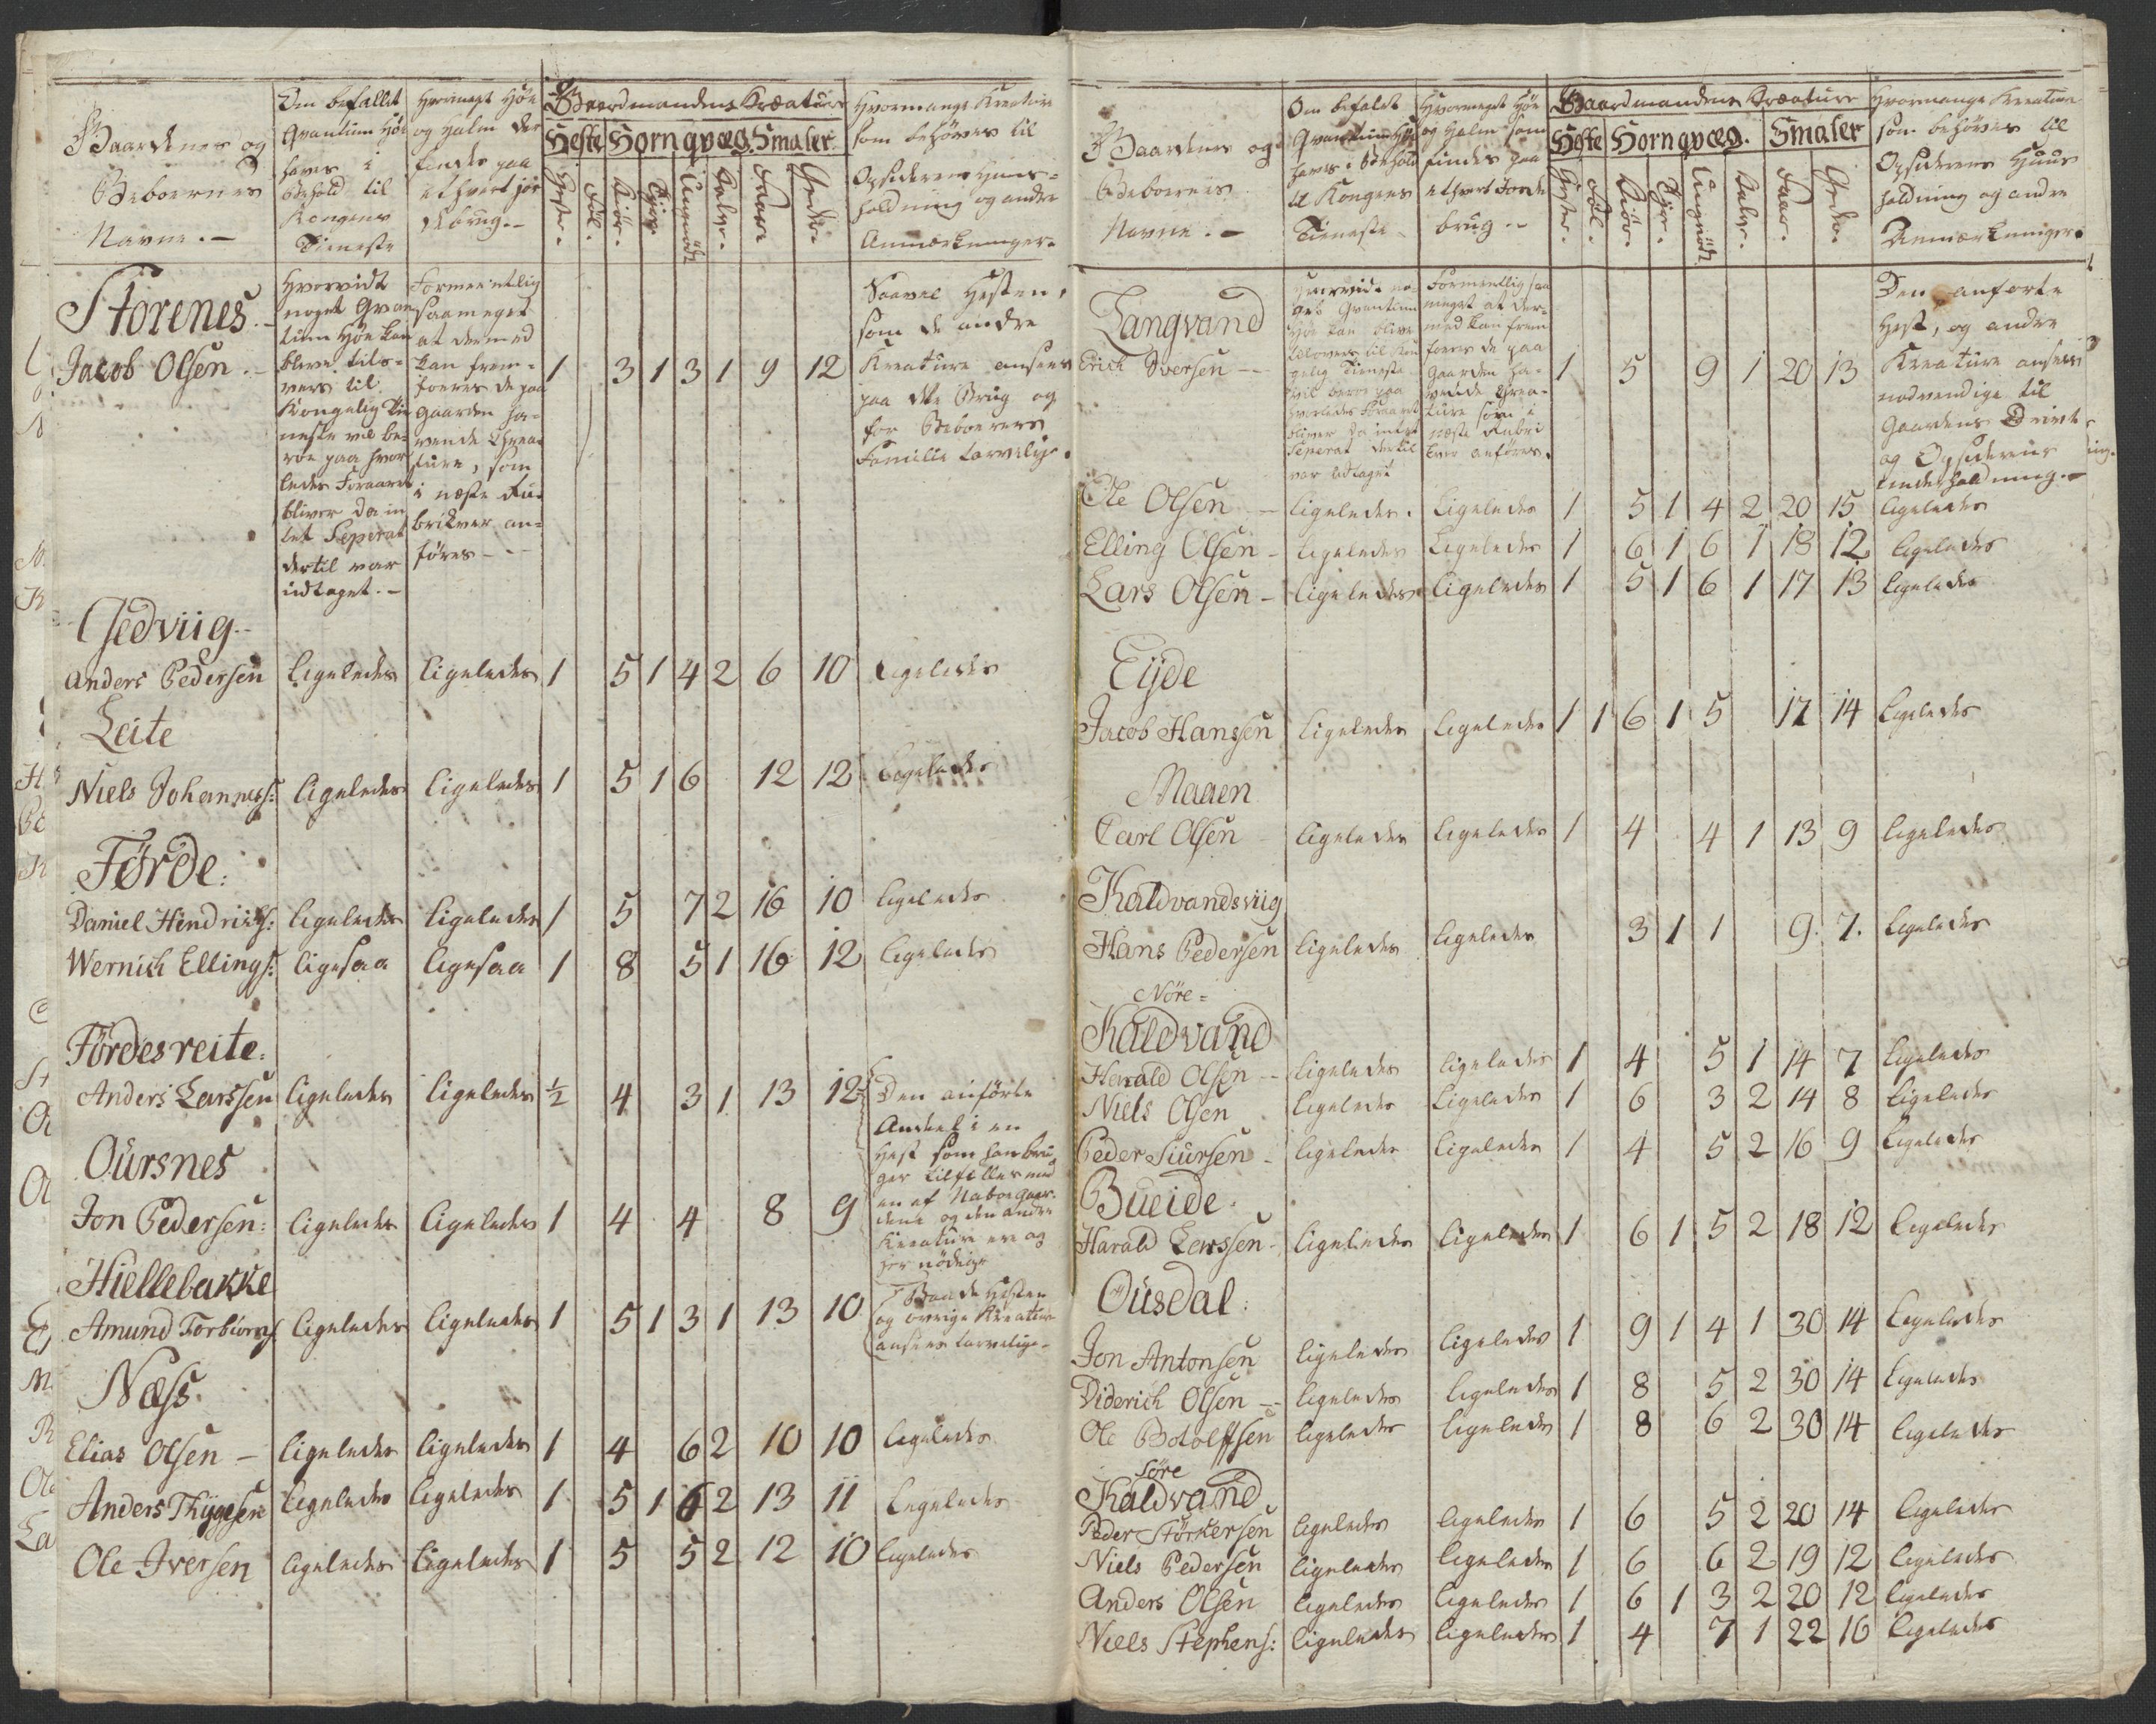 Gaardenes og
Beboernes
Navne.-
Om befallet
Qvantum Høe
haves i
Behold til
Kongens
Tieneste
Hvormeget Høe
og Halm der
findes paa
ethvert Jor
dbrug.-
Gaardmandens Kreature
Heste Hornqvæg. Smaler
Heste. Føl. Kiør. Tyre Ungnødt Kalve. Faar. Geder.
Hvormange Kreature
som behøves til
Opsiderens Huus=
holdning og andre
Anmærkninger.
Storenes.-
Hvorvidt
noget Qvan
tum Høe kan
blive tilo=
vers til
Kongelig Tie
neste vil be=
roe paa hvor
ledes Foraaret
bliver da in
tet Seperat
dertil var
udtaget.-
Formeentlig
saameget
at dermed
kan frem=
foeres de paa
Gaarden ha=
vende Chrea
ture, som
i næste Ru=
brikver an=
føres--
Saavel Hesten,
som de andre
Kreature ansees
paa dette Brug og
for Beboerens
Familie tarvelige.
Jacob Olsen.- 1 3 1 3 1 9 12
Gedviig.-
Anders Pedersen Ligeledes Ligeledes 1 5 1 4 2 6 10 Ligeledes
Leite
Niels Johanness: Ligeledes Ligeledes 1 5 1 6 12 12 Ligeledes
Førde:
Daniel Hendrichs: Ligeledes Ligeledes 1 5 7 2 16 10 Ligeledes
Wernich Ellings: ligesaa ligesaa 1 8 5 1 16 12 Ligeledes
Førdesreite:
Anders Larssen Ligeledes Ligeledes ½ 4 3 1 13 12 Den anførte
Andeel i en
Hest som han bru
ger tilfælles med
en af Naboegaar=
dene og den andre
Kreature ere og
her nødige
Oursnes
Jon Pedersen: Ligeledes Ligeledes 1 4 4 8 9
Hiellebakke
Amund Torbiorns Ligeledes Ligeledes 1 5 1 3 1 13 10 Baade Hesten
og øvrige Kreature
ansees tarvelige-
Næss.
Elias Olsen - Ligeledes Ligeledes 1 4 6 2 10 10 Ligeledes
Anders Thygesen Ligeledes Ligeledes 1 5 1 6 2 13 11 Ligeledes
Ole Iversen Ligeledes Ligeledes 1 5 5 2 12 10 Ligeledes
Gaardenes og
Beboernes
Navne.-
Om befalet
Qvantum Høe
haves i Behold
til Kongens
Tieneste-
Hvormeget Høe
og Halm som
findes paa
ethvert Jorde
brug.-
Gaardmandens Kreature
Heste Hornqvæg. Smaler
Heste. Føl. Kiør. Tyre. Ungnødt Kalve. Faar. Geder.
Hvormange Kreature
som behøves til
Opsiderens Huus
holdning og andre
Anmærkninger.
Langvand
Hvorvidt no
get Qvantum
Høe kan blive
tilovers til Kon
gelig Tieneste
vil beroe paa
hvorledes Foraaret
bliver da intet
Seperat dertil
var udtaget
Formentlig saa
meget at der=
med kan frem
foeres de paa
Gaarden ha=
vende Chrea=
ture som i
næste Rubri
kver anføres.
Den anførte
Hest, og andre
Kreature ansees
nødvendige til
Gaardens Drivt
og Opsiderens
Underholdning.-
Erich Iversen -- 1 5 9 1 20 13
Ole Olsen - Ligeledes. Ligeledes 1 5 1 4 2 20 15 Ligeledes
Elling Olsen - Ligeledes Ligeledes 1 6 1 6 1 18 12 Ligeledes
Lars Olsen - Ligeledes Ligeledes 1 5 1 6 1 17 13 Ligeledes
Eijde
Jacob Hanssen Ligeledes Ligeledes 1 1 6 1 5 17 14 Ligeledes
Maaen
Carl Olsen - Ligeledes Ligeledes 1 4 4 1 13 9 Ligeledes
Kaldvandsviig
Hans Pedersen Ligeledes Ligeledes 3 1 1 9. 7. Ligeledes
Nøre=
Kaldvand
Harald Olsen -- Ligeledes Ligeledes 1 4 5 1 14 7 Ligeledes
Niels Olsen Ligeledes Ligeledes 1 6 3 2 14 8 Ligeledes
Peder Siursen - Ligeledes Ligeledes 1 4 5 2 16 9 Ligeledes
Bueide.
Harald Larssen - Ligeledes Ligeledes 1 6 1 5 2 18 12 Ligeledes
Ousdal:
Jon Antonsen Ligeledes Ligeledes 1 9 1 4 1 30 14 Ligeledes
Diderich Olsen -- Ligeledes Ligeledes 1 8 5 2 30 14 Ligeledes
Ole Botolfsen Ligeledes Ligeledes 1 8 6 2 30 14 Ligeledes
Søre
Kaldvand
Peder Størkersen Ligeledes Ligeledes 1 6 5 2 20 14 Ligeledes
Niels Pedersen Ligeledes Ligeledes 1 6 6 2 19 12 Ligeledes
Anders Olsen Ligeledes Ligeledes 1 6 1 3 2 20 12 Ligeledes
Niels Stephens: Ligeledes Ligeledes 1 4 7 1 22 16 Ligeledes